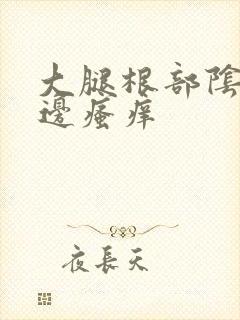 大腿根部陰
邊瘙痒
夜長天